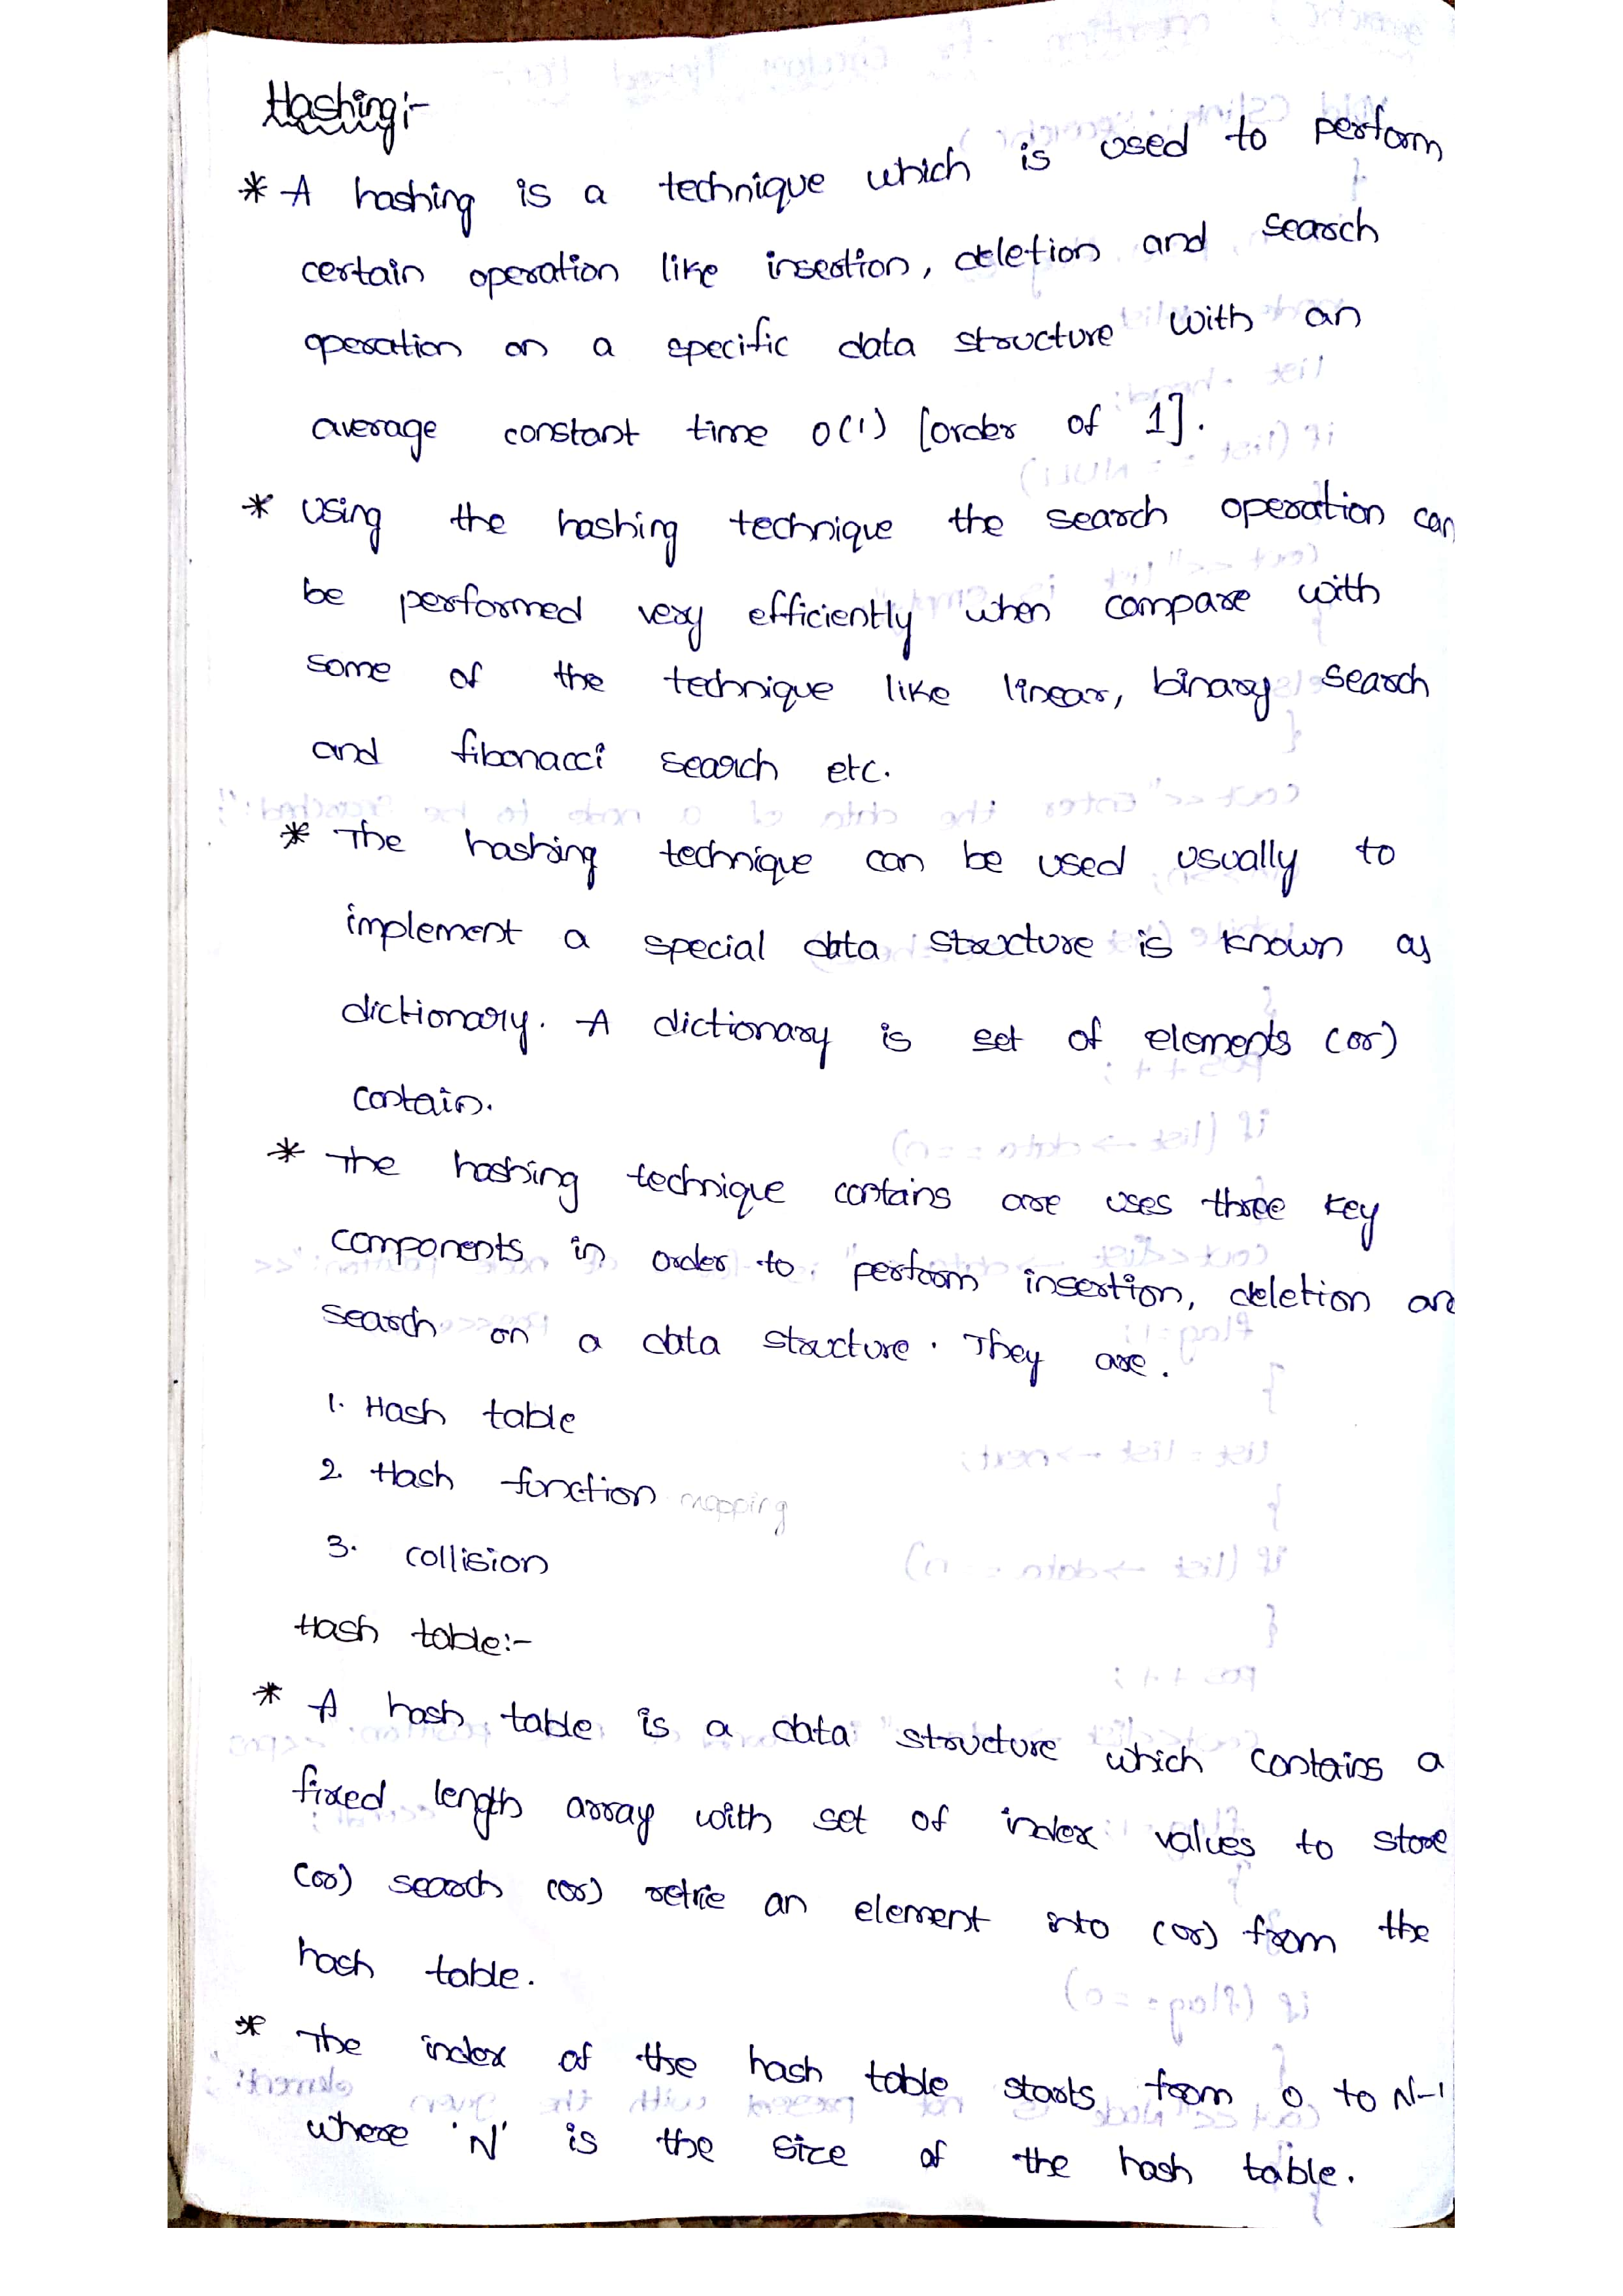 Hashing:-
* A hashing is a technique which is used to perform
certain operation like insertion, deletion and search
operation on a specific data structure with an
average constant time o(1) [order of 1].
* Using the hashing technique the search operation can
be performed very efficiently when compare with
some of the technique like linear, binary search
and fibonacci search etc.
* The hashing technique can be used usually to
implement a special data structure is known as
dictionary. A dictionary is set of elements (or)
contain.
* The hashing technique contains are uses three key
components in order to perform insertion, deletion an
search on a data structure. They are.
1. Hash table
2. Hash function mapping
3. collision
Hash table:-
* A hash table is a data structure which contains a
fixed length array with set of index values to store
(or) search (or) retrie an element into (or) from the
hash table.
* The index of the hash table starts from 0 to N-1
where 'N' is the size of the hash table.